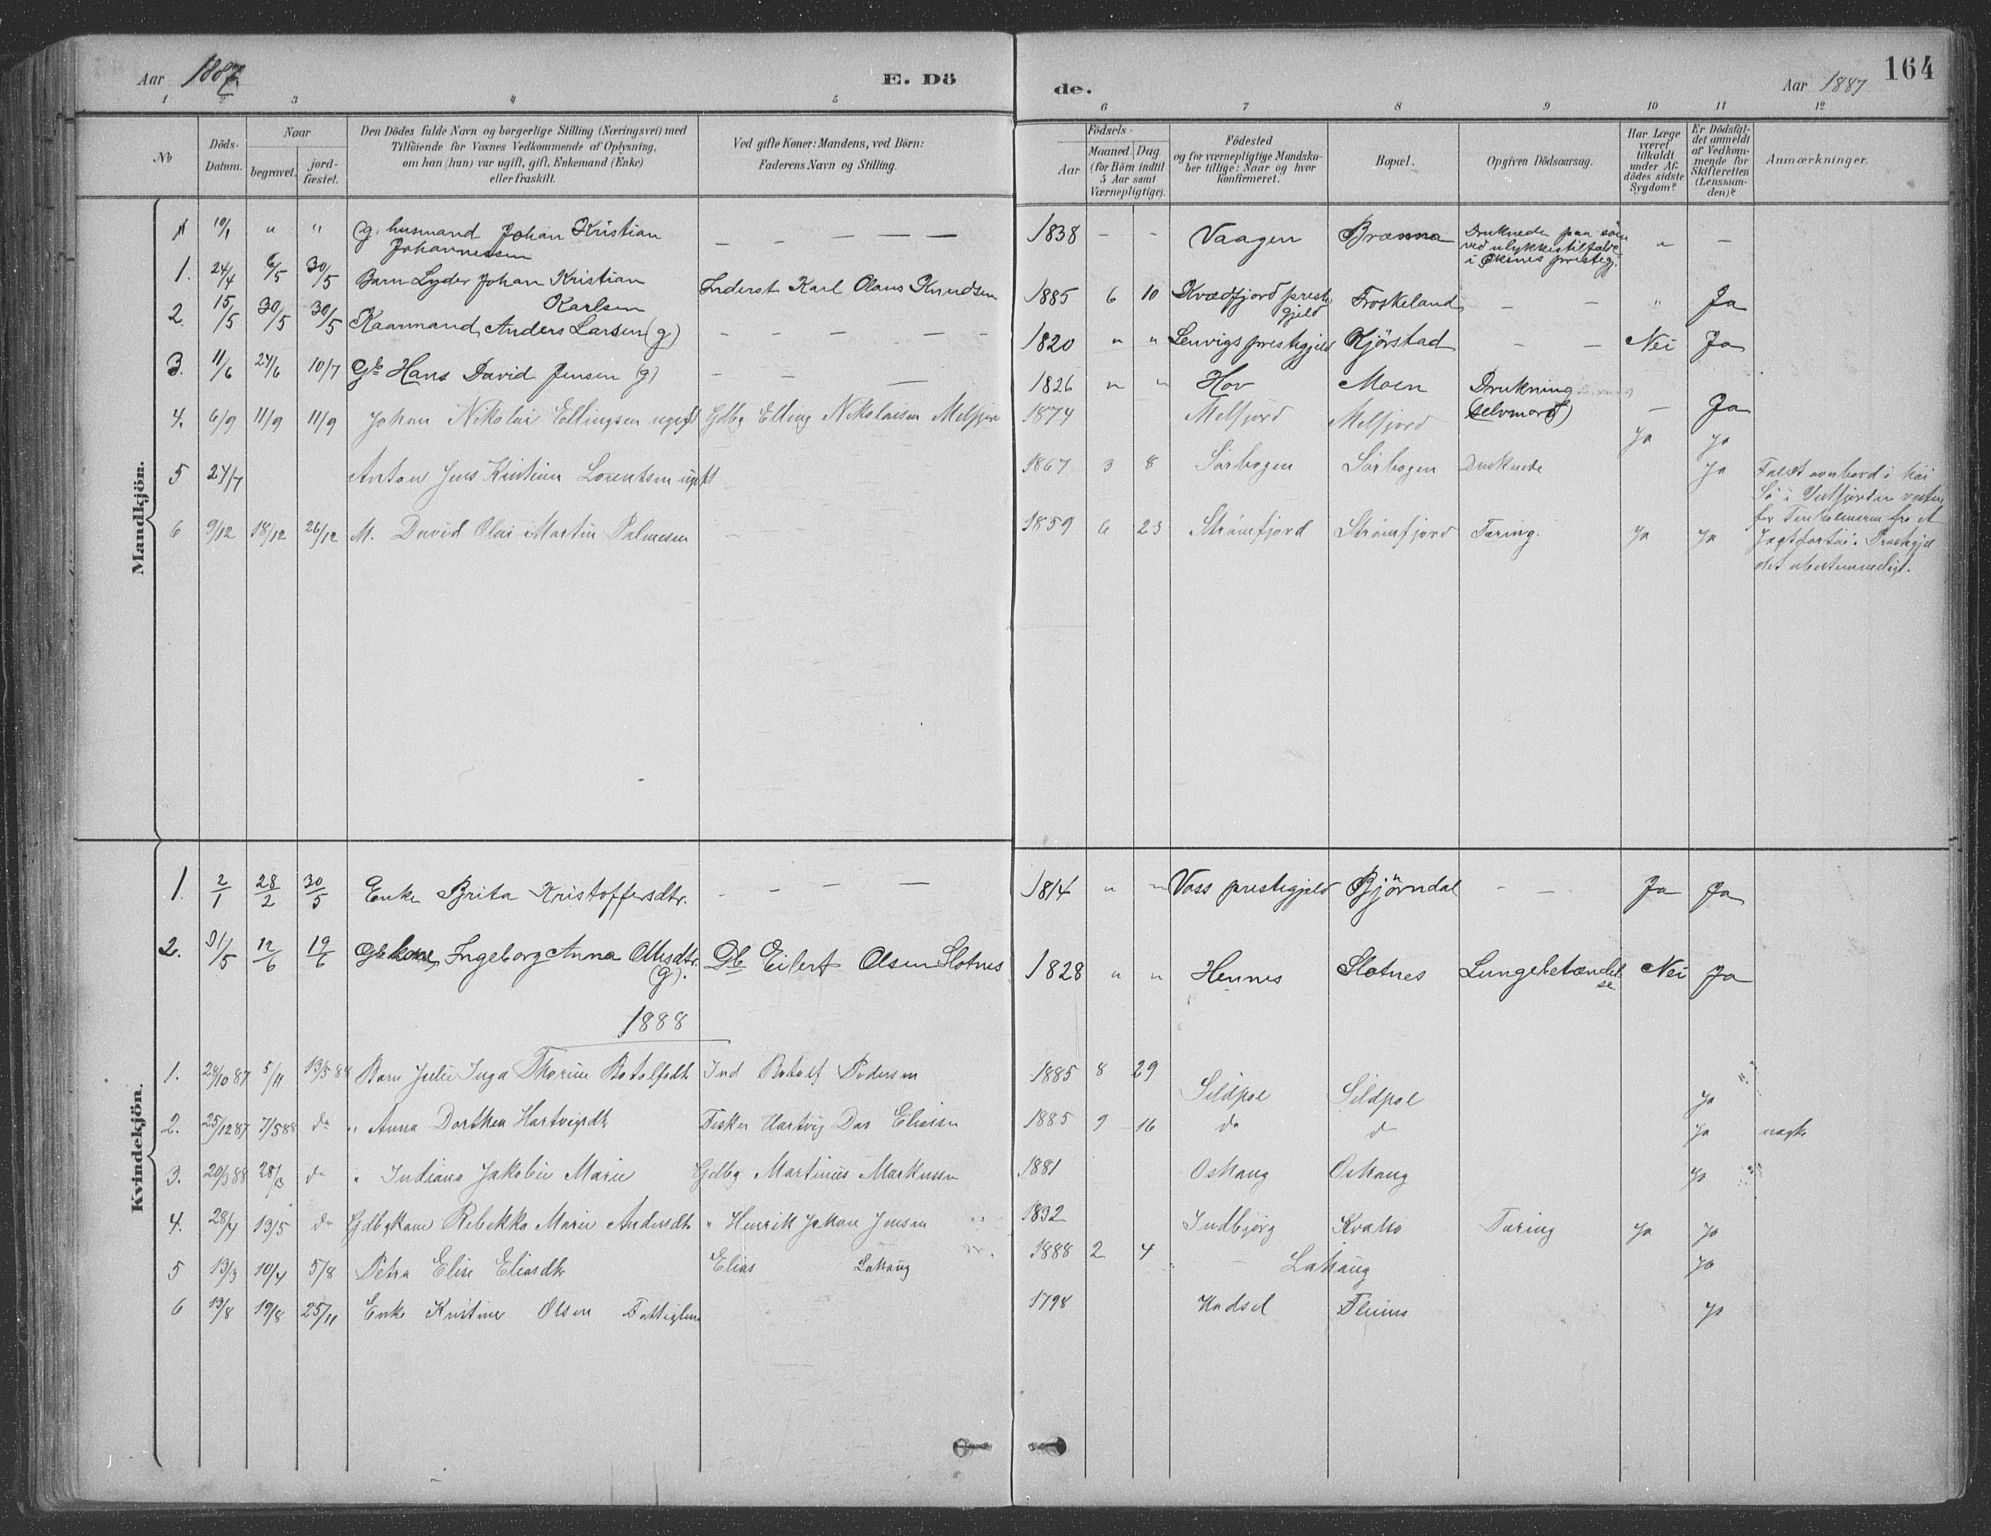 Aar 1887
E. Dö
de.
Aar 1887
164
1 2 3 4 5 6 7 8 9 10 11 12
No
Döds-Datum.
Naar
begravet.
jord-fæstet.
Den Dödes fulde Navn og borgerlige Stilling (Næringsvei) med
Tilföiende for Voxnes Vedkommende af Oplysning,
om han (hun) var ugift, gift, Enkemand (Enke)
eller fraskilt.
Ved gifte Koner: Mandens, ved Börn:
Faderens Navn og Stilling.
Födsels-
Aar
Maaned. Dag.
(for Börn indtil
5 Aar samt
Værnepligtige).
Födested
og for værnepligtige Mandska-
ber tillige: Naar og hvor
konfirmeret.
Bopæl.
Opgiven Dödsaarsag.
Har Læge
været
tilkaldt
under Af-
dödes sidste
Sygdom?
Er Dödsfal-
det anmeldt
af Vedkom-
mende for
Skifteretten
(Lensman-
den)?
Anmærkninger.
Mandkjön.
1 10/1 " " (g. husmand Johan Kristian — — — — 1838 — — Vaagen Brænna Druknede paa söen " —
Johannessen ved ulykkestilfælde
i Öksnes prestegj.
1. 24/4 6/5 30/5 Barn Lyder Johan Kristian Inderst Karl Olaus Knudsen 1885 6 10 Kvædfjord preste Froskeland — — " Ja
Karlsen gjeld
2. 15/5 30/5 30/5 Kaarmand, Anders Larsen (g) — — — — 1820 " " Lenvigs prestegjeld Kjörstad — — Nei Ja
3. 11/6 24/6 10/7 Gb Hans David Jensen (g) — — — 1826 " " Hov Moen Drukning
(selvmord) — Ja
4. 6/9 11/9 11/9 Johan Nikolai Ellingsen ugift Gdbg Elling Nikolaisen Melfjord 1874 Melfjord Melfjord Ja Ja
5 24/7 Anton Jens Kristian Lorentsen ugift 1867 3 8 Sørbogen Sørbogen Druknede Ja Faldt overbord i høi
Sø i Vestfjorden vesten
for
6 9/12 18/12 26/12 M. David Olai Martin Palmesen — 1859 6 23 Strømfjord Strømfjord Tæring. Ja Ja
det ubestemmeligt.
Kvindekjön.
1. 2/1 28/2 30/5 Enke Brita Kristoffersdtr. — — — — 1814 " " Voss prestegjeld Bjørndal — — Ja Ja
2. 31/5 12/6 19/6 Gbkone, Ingeborg Anna Olesdtr. Gb Eilert Olsen Slotnes 1828 " " Hennes Slotnes Lungebetændel- Nei Ja
(g). se
1888
1. 29/10 87 5/11 13/5 88 Barn Julie Inga Thorine Botolfsdtr Ind Botolf Pedersen 1885 8 29 Sildpol Sildpol Ja
2. 25/12 87 7/5 88 do " Anna Dorthea Hartvigsdtr Fisker Hartvig Das Eliassen 1885 9 16 do d Ja nøgte
3. 20/3 88 28/3 do " Indiana Jakobie Marie Gdbg Martinus Markussen 1881 Oshaug Oshaug Ja
4. 28/4 13/5 do Gdbgkone Rebekka Marie Andersdtr " Henrik Johan Jensen 1832 Indbjørg Kvalsø Tæring Ja Ja
5 13/3 10/4 5/8 Petra Elise Eliasdtr Elias Lahaug 1888 2 4 Lahaug Ja
6 13/8 19/8 25/11 Enke Kristine Olsen 1798 Hadsel Flines Ja